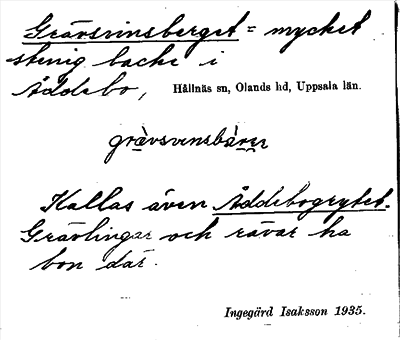 Grävsvinsberget = mycket
stenig backe i
Åddebo, Hållnäs sn, Olands hd, Uppsala län.
grävsvinsbäret
Kallas även Åddebogrytet.
Grävlingar och rävar ha
bon där.
Ingegärd Isaksson 1935.